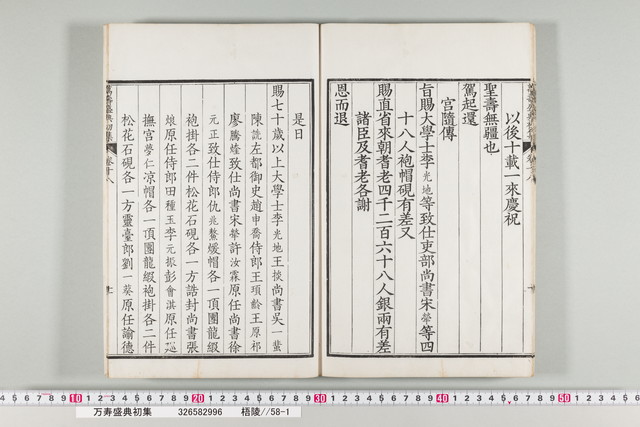 以後十載一來慶祝
聖壽無疆也
駕起還
宮隨傳
旨賜大學士李光地等致仕吏部尚書宋犖等四
十八人袍帽硯有差又
賜直省來朝耆老四千二百六十八人銀兩有差
諸臣及耆老各謝
恩而退
是日
賜七十歲以上大學士李光地王掞尚書吳一蜚
陳詵左都御史趙申喬侍郎王頊齡王原祁
廖騰煃致仕尚書宋犖許汝霖原任尚書徐
元正致仕侍郎仇兆鰲煖帽各一頂團龍緞
袍掛各二件松花石硯各一方誥封尚書張
烺原任侍郎田種玉李元振彭會淇原任巡
撫宮夢仁涼帽各一頂團龍緞袍掛各二件
松花石硯各一方靈臺郎劉一葵原任諭德
萬壽盛典初集 卷廿八
10 20 30 40 50
万寿盛典初集 326582996 梧陵//58-1